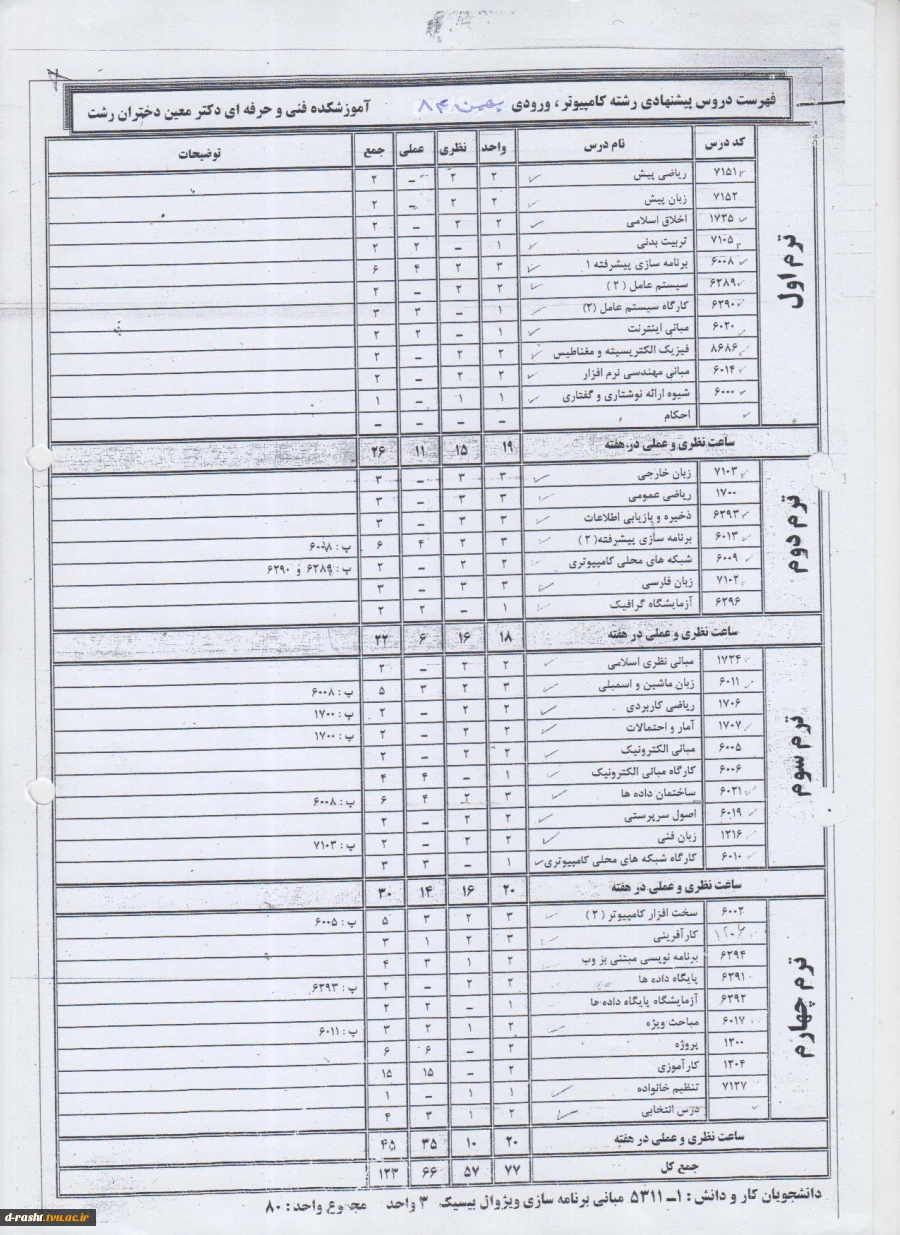 فهرست دروس پیشنهادی رشته کامپیوتر ، ورودی بهمن ۸۴ آموزشکده فنی و حرفه ای دکتر معین دختران رشت
کد درس نام درس واحد نظری عملی جمع توضیحات
ترم اول
۷۱۵۱ ریاضی پیش ۲ ۲ – ۲
۷۱۵۲ زبان پیش ۲ ۲ – ۲
۱۷۲۵ اخلاق اسلامی ۲ ۲ – ۲
۷۱۰۵ تربیت بدنی ۱ – ۲ ۲
۶۰۰۸ برنامه سازی پیشرفته ۱ ۳ ۲ ۴ ۶
۶۲۸۹ سیستم عامل (۲) ۲ ۲ – ۲
۶۲۹۰ کارگاه سیستم عامل (۲) ۱ – ۳ ۳
۶۰۲۰ مبانی اینترنت ۱ – ۲ ۲
۸۶۸۶ فیزیک الکتریسیته و مغناطیس ۲ ۲ – ۲
۶۰۱۴ مبانی مهندسی نرم افزار ۲ ۲ – ۲
۶۰۰۰ شیوه ارائه نوشتاری و گفتاری ۱ ۱ – ۱
احکام – – – –
ساعت نظری و عملی در هفته ۱۹ ۱۵ ۱۱ ۲۶
ترم دوم
۷۱۰۳ زبان خارجی ۳ ۳ – ۳
۱۷۰۰ ریاضی عمومی ۳ ۳ – ۳
۶۲۹۳ ذخیره و بازیابی اطلاعات ۳ ۳ – ۳
۶۰۱۳ برنامه سازی پیشرفته (۲) ۳ ۲ ۴ ۶ پ : ۶۰۰۸
۶۰۰۹ شبکه های محلی کامپیوتری ۲ ۲ – ۲ پ : ۶۲۸۹ و ۶۲۹۰
۷۱۰۲ زبان فارسی ۳ ۳ – ۳
۶۲۹۶ آزمایشگاه گرافیک ۱ – ۲ ۲
ساعت نظری و عملی در هفته ۱۸ ۱۶ ۶ ۲۲
ترم سوم
۱۷۲۴ مبانی نظری اسلامی ۲ ۲ – ۲
۶۰۱۱ زبان ماشین و اسمبلی ۳ ۲ ۳ ۵ پ : ۶۰۰۸
۱۷۰۶ ریاضی کاربردی ۲ ۲ – ۲ پ : ۱۷۰۰
۱۷۰۷ آمار و احتمالات ۲ ۲ – ۲ پ : ۱۷۰۰
۶۰۰۵ مبانی الکترونیک ۲ ۲ – ۲
۶۰۰۶ کارگاه مبانی الکترونیک ۱ – ۴ ۴
۶۰۲۱ ساختمان داده ها ۳ ۲ ۴ ۶ پ : ۶۰۰۸
۶۰۱۹ اصول سرپرستی ۲ ۲ – ۲
۱۲۱۶ زبان فنی ۲ ۲ – ۲ پ : ۷۱۰۳
۶۰۱۰ کارگاه شبکه های محلی کامپیوتری ۱ – ۳ ۳
ساعت نظری و عملی در هفته ۲۰ ۱۶ ۱۴ ۳۰
ترم چهارم
۶۰۰۲ سخت افزار کامپیوتر (۲) ۳ ۲ ۳ ۵ پ : ۶۰۰۵
۱۲۰۶ کارآفرینی ۳ ۲ ۱ ۳
۶۲۹۴ برنامه نویسی مبتنی بر وب ۲ ۱ ۳ ۴
۶۲۹۱ پایگاه داده ها ۲ ۲ – ۲ پ : ۶۲۹۳
۶۲۹۲ آزمایشگاه پایگاه داده ها ۱ – ۲ ۲
۶۰۱۷ مباحث ویژه ۲ ۱ ۲ ۳ پ : ۶۰۱۱
۱۲۰۰ پروژه ۲ – ۶ ۶
۱۲۰۴ کارآموزی ۲ – ۱۵ ۱۵
۷۱۲۷ تنظیم خانواده ۱ ۱ – ۱
درس انتخابی ۲ ۱ ۳ ۴
ساعت نظری و عملی در هفته ۲۰ ۱۰ ۳۵ ۴۵
جمع کل ۷۷ ۵۷ ۶۶ ۱۲۳
دانشجویان کار و دانش : ۱ـ ۵۳۱۱ مبانی برنامه سازی ویژوال بیسیک ۳ واحد مجموع واحد : ۸۰
d-rasht.tvu.ac.ir